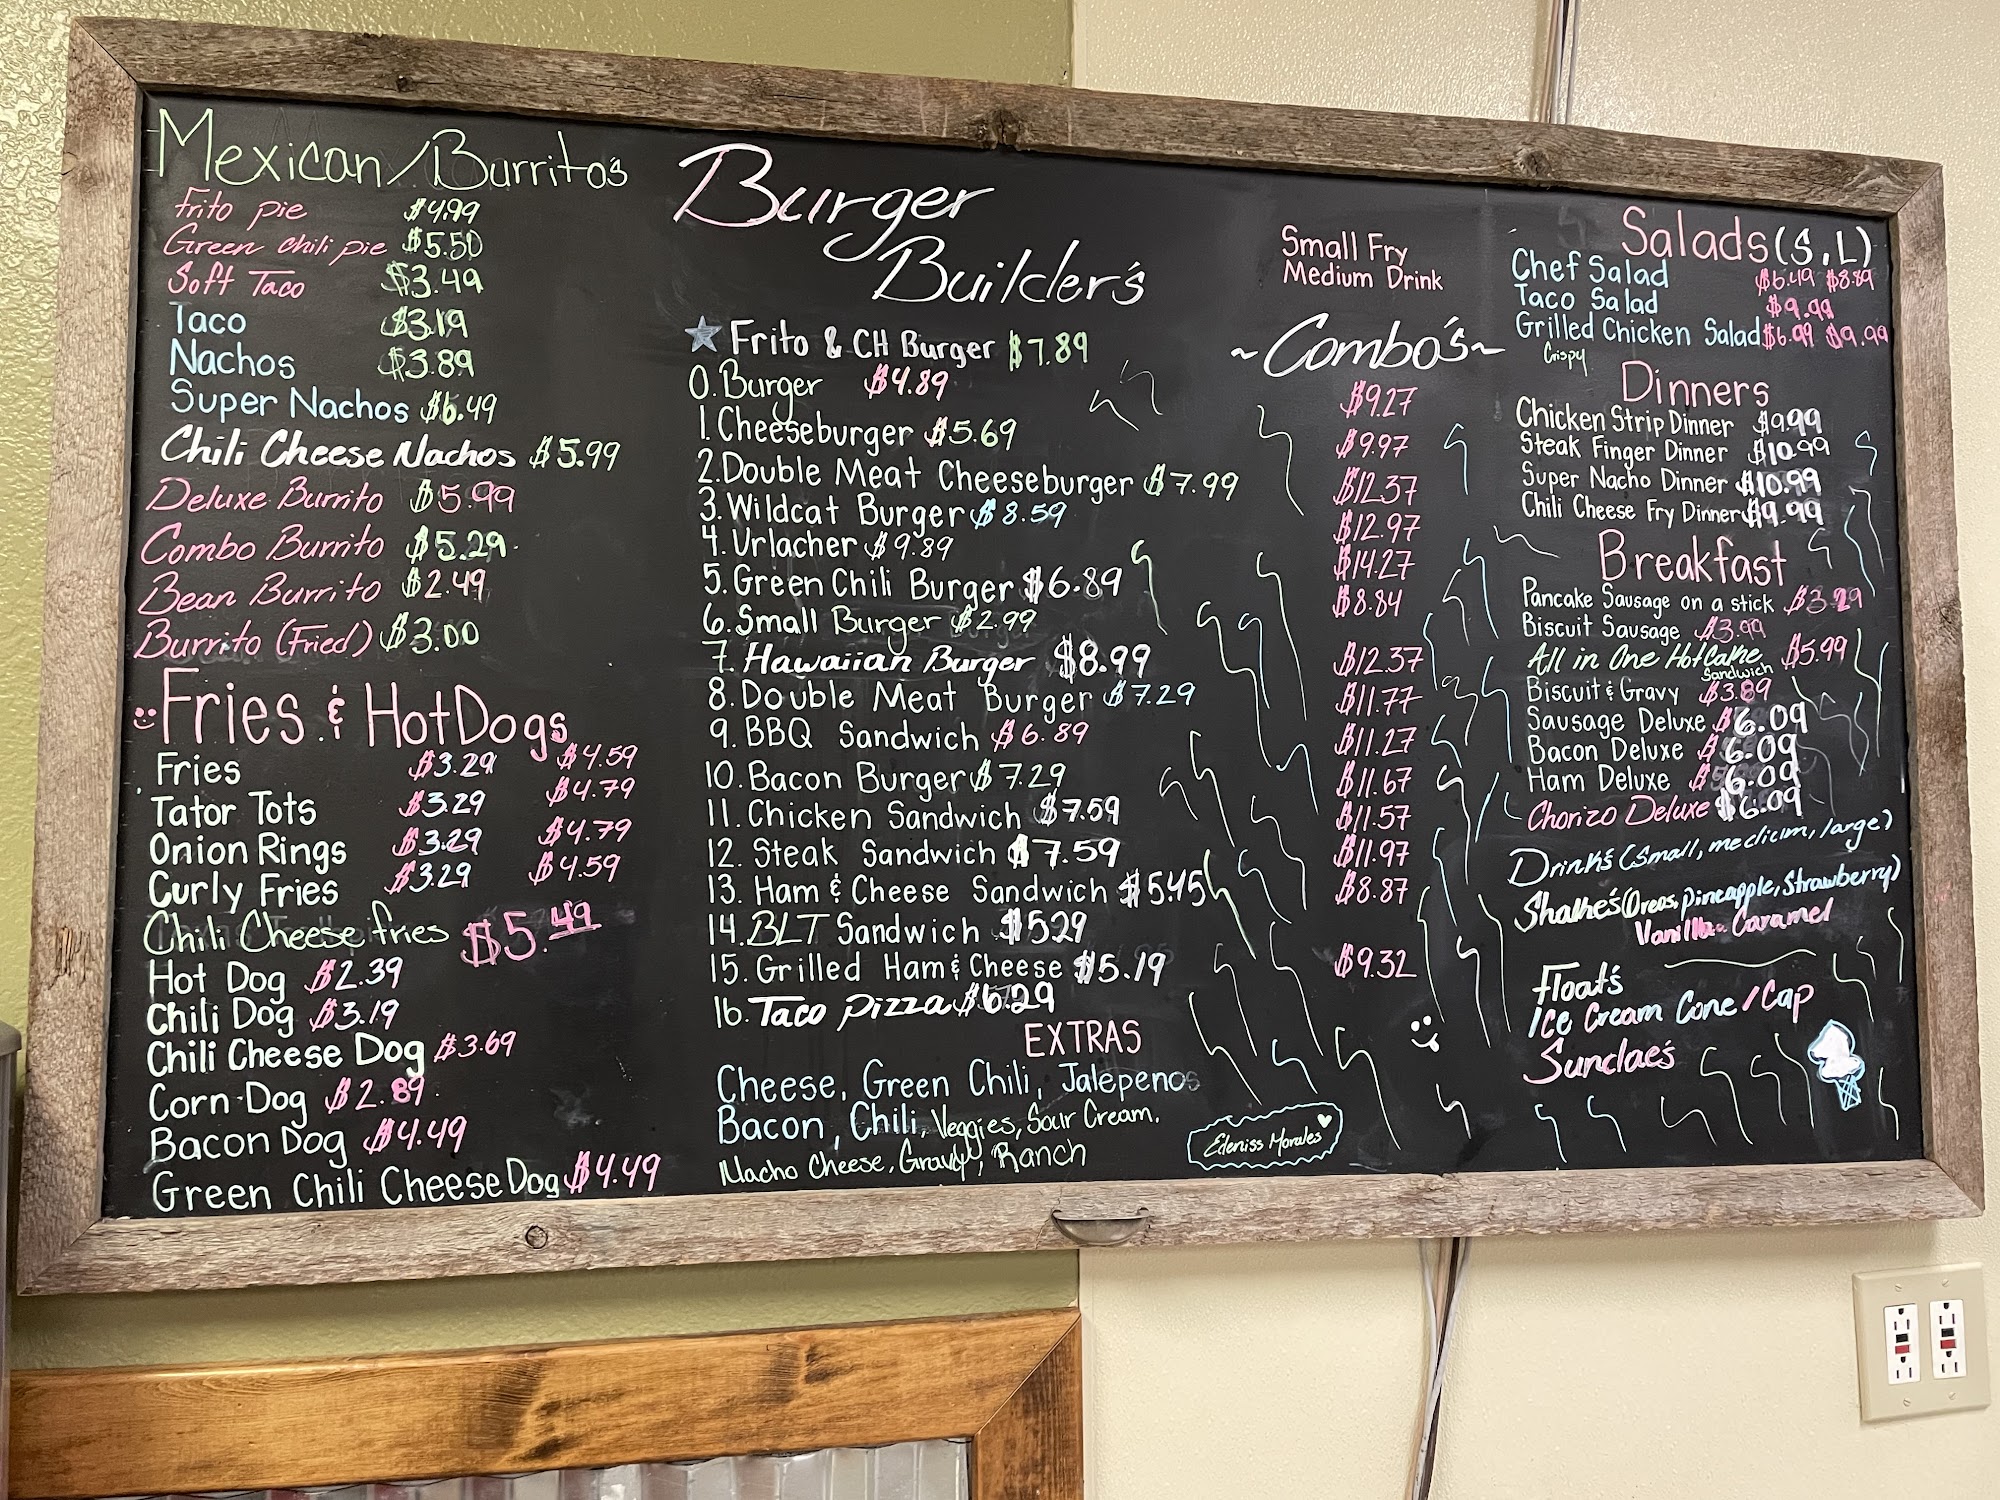 Mexican/Burrito's
Frito pie $4.99
Green chili pie $5.50
Soft Taco $3.49
Taco $3.19
Nachos $3.89
Super Nachos $6.49
Chili Cheese Nachos $5.99
Deluxe Burrito $5.99
Combo Burrito $5.29
Bean Burrito $2.49
Burrito (Fried) $3.00
Fries & HotDogs
Fries $3.29 $4.59
Tator Tots $3.29 $4.79
Onion Rings $3.29 $4.79
Curly Fries $3.29 $4.59
Chili Cheese fries $5.49
Hot Dog $2.39
Chili Dog $3.19
Chili Cheese Dog $3.69
Corn Dog $2.89
Bacon Dog $4.49
Green Chili Cheese Dog $4.49
Burger
Builder's
Frito & CH Burger $7.89
0. Burger $4.89
1. Cheeseburger $5.69
2. Double Meat Cheeseburger $7.99
3. Wildcat Burger $8.59
4. Urlacher $9.89
5. Green Chili Burger $6.89
6. Small Burger $2.99
7. Hawaiian Burger $8.99
8. Double Meat Burger $7.29
9. BBQ Sandwich $6.89
10. Bacon Burger $7.29
11. Chicken Sandwich $7.59
12. Steak Sandwich $7.59
13. Ham & Cheese Sandwich $5.45
14. BLT Sandwich $5.29
15. Grilled Ham & Cheese $5.19
16. Taco pizza $6.29
EXTRAS
Cheese, Green Chili, Jalepenos
Bacon, Chili, Veggies, Sour Cream,
Nacho Cheese, Gravy, Ranch
Edeniss Morales
Small Fry
Medium Drink
~Combo's~
$9.27
$9.97
$12.37
$12.97
$14.27
$8.84
$12.37
$11.77
$11.27
$11.67
$11.57
$11.97
$8.87
$9.32
Salads (S, L)
Chef Salad $6.49 $8.89
Taco Salad $9.99
Grilled Chicken Salad $6.99 $9.99
Crispy
Dinners
Chicken Strip Dinner $9.99
Steak Finger Dinner $10.99
Super Nacho Dinner $10.99
Chili Cheese Fry Dinner $9.99
Breakfast
Pancake Sausage on a stick $3.29
Biscuit Sausage $3.99
All in One HotCake $5.99
Sandwich
Biscuit & Gravy $3.89
Sausage Deluxe $6.09
Bacon Deluxe $6.09
Ham Deluxe $6.09
Chorizo Deluxe $6.09
Drink's (Small, medium, large)
Shake's (Oreos, pineapple, Strawberry)
Vanilla Caramel
Float's
Ice Cream Cone/Cap
Sundae's